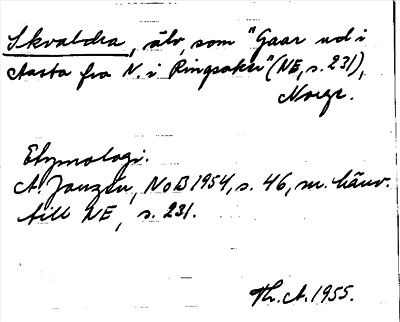 Skvaldra, älv, som "Gaar ud i
Aasta fra N. i Ringsaker" (NE, s. 231),
Norge.
Etymologi.
A. Janzén, NoB 1954, s. 46, m. hänv.
till NE, s. 231.
Th. A. 1955.